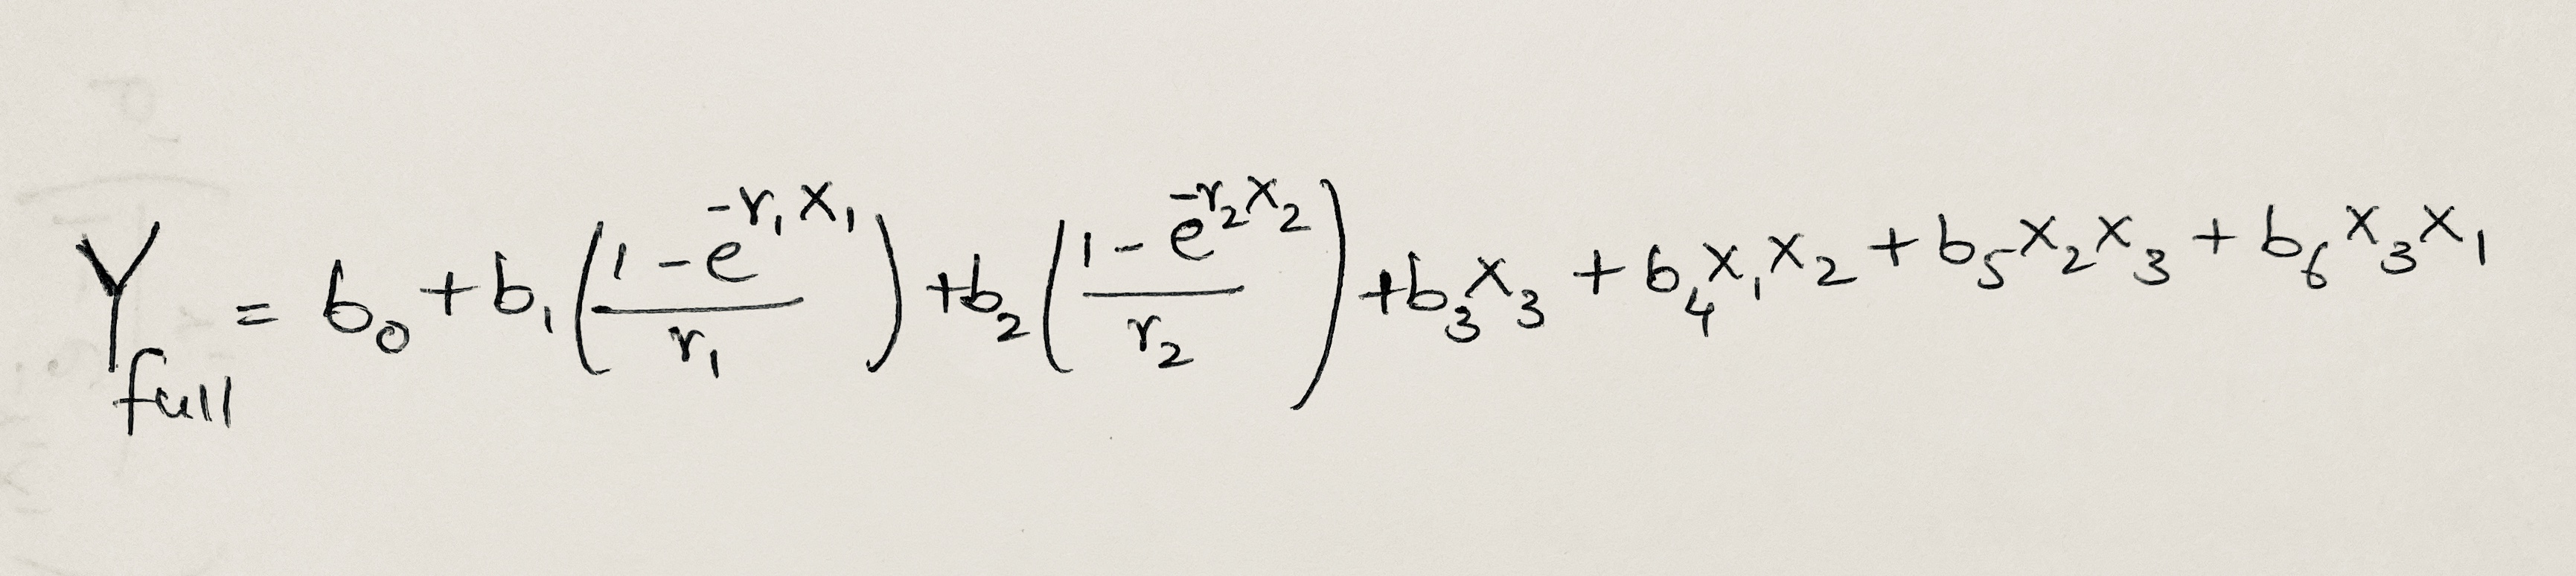 Y_full = b_0 + b_1 ((1 - e^{-r_1 x_1}) / r_1) + b_2 ((1 - e^{-r_2 x_2}) / r_2) + b_3 x_3 + b_4 x_1 x_2 + b_5 x_2 x_3 + b_6 x_3 x_1